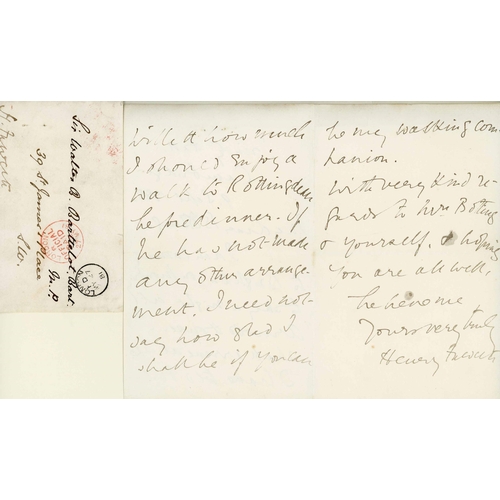 Sir Walter B. Barttelot, Bart.
M.P.
39 St James's Place
S.W.
H. Fawcett
LONDON
OFFICIAL PAID
Will tell how much
I should enjoy a
walk to Rottingdean
before dinner. If
he has not made
any other arrange-
ment. I need not
say how glad I
shall be if you can
be my walking com
panion.
With very kind re-
gards to Mrs Botting
& yourself, & hoping
you are all well,
believe me
Yours very truly
Henry Fawcett